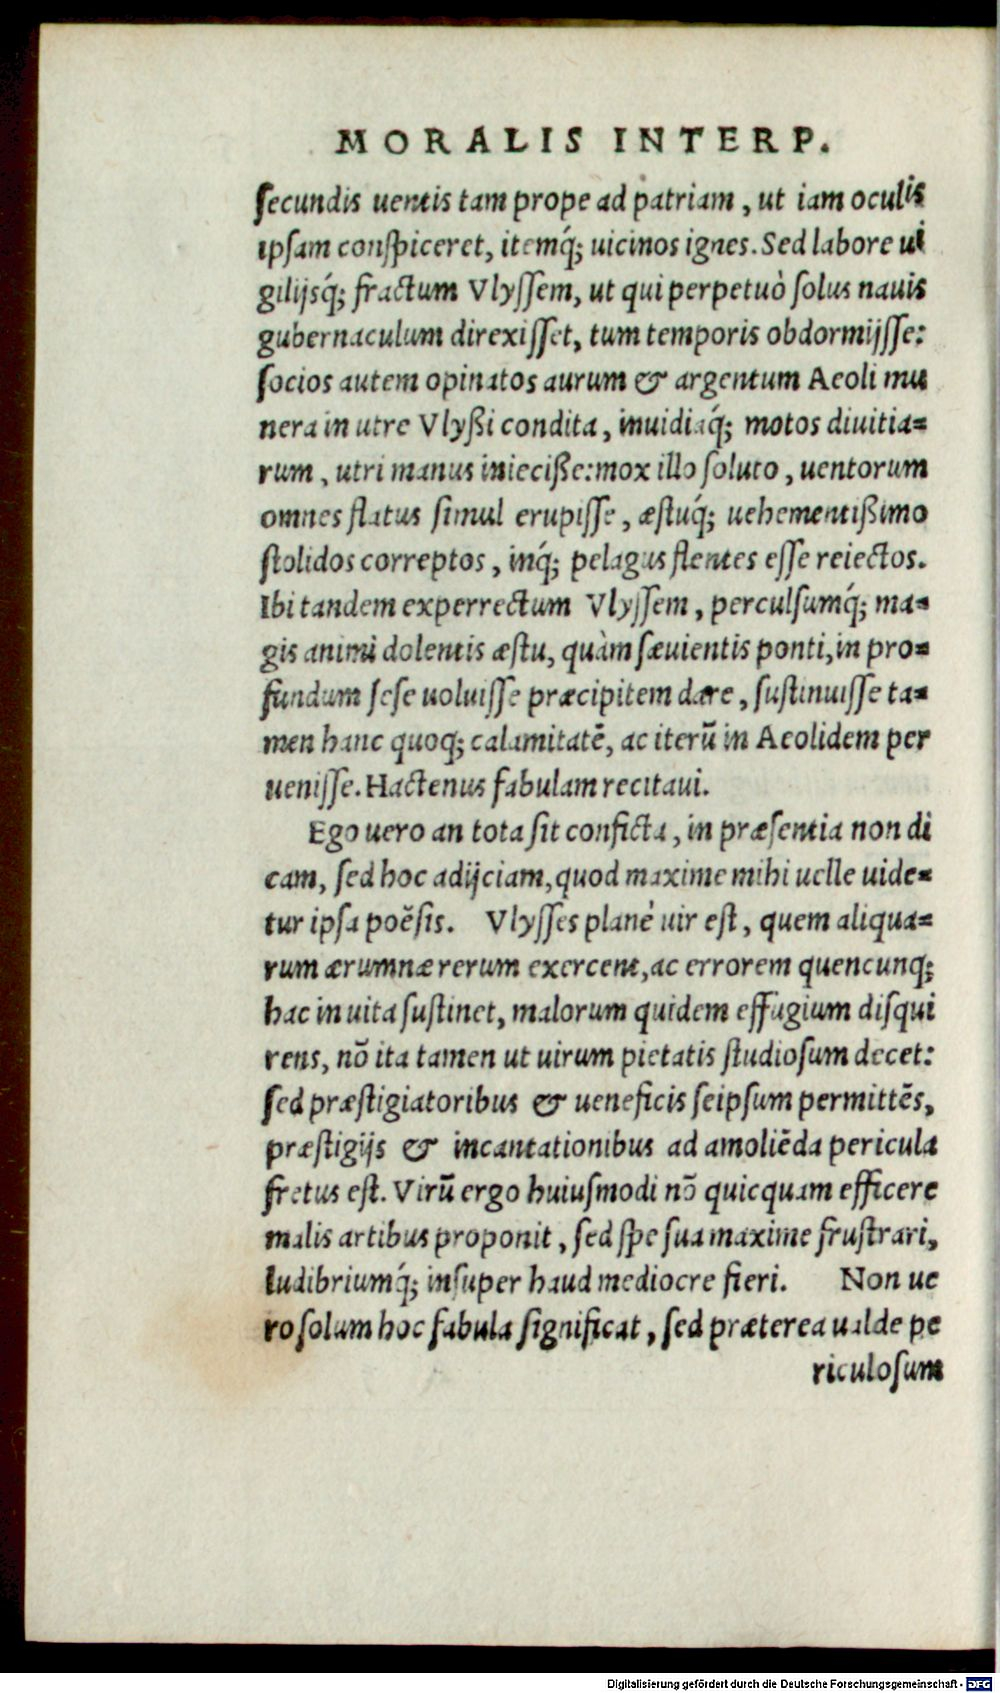 MORALIS INTERP.
secundis uentis tam prope ad patriam, ut iam oculis
ipsam conspiceret, itemq́; uicinos ignes. Sed labore ui
gilijsq́; fractum Vlyssem, ut qui perpetuò solus nauis
gubernaculum direxisset, tum temporis obdormijsse:
socios autem opinatos aurum & argentum Aeoli mu
nera in utre Vlyßi condita, inuidiaq́; motos diuitia=
rum, utri manus inieciße: mox illo soluto, uentorum
omnes flatus simul erupisse, æstuq́; uehementißimo
stolidos correptos, inq́; pelagus flentes esse reiectos.
Ibi tandem experrectum Vlyssem, perculsumq́; ma=
gis animi dolentis æstu, quàm sæuientis ponti, in pro=
fundum sese uoluisse præcipitem dare, sustinuisse ta=
men hanc quoq; calamitatē, ac iterū in Aeolidem per
uenisse. Hactenus fabulam recitaui.
Ego uero an tota sit conficta, in præsentia non di
cam, sed hoc adijciam, quod maxime mihi uelle uide=
tur ipsa poësis. Vlysses planè uir est, quem aliqua=
rum ærumnæ rerum exercent, ac errorem quencunq;
hac in uita sustinet, malorum quidem effugium disqui
rens, nō ita tamen ut uirum pietatis studiosum decet:
sed præstigiatoribus & ueneficis seipsum permittēs,
præstigijs & incantationibus ad amoliēda pericula
fretus est. Virū ergo huiusmodi nō quicquam efficere
malis artibus proponit, sed spe sua maxime frustrari,
ludibriumq́; insuper haud mediocre fieri. Non ue
ro solum hoc fabula significat, sed præterea ualde pe
riculosum
Digitalisierung gefördert durch die Deutsche Forschungsgemeinschaft - DFG